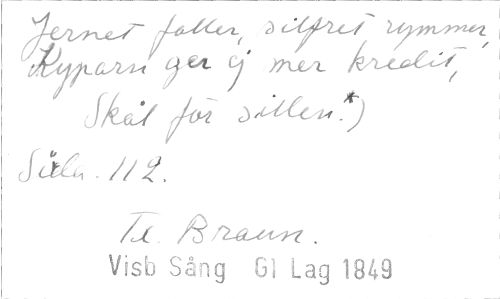 Jernet faller, silfret rymmer,
Kyparn ger ej mer kredit,
Skål för sillen.*)
Sidn. 112.
Tr. Braun.
Visb Sång Gl Lag 1849